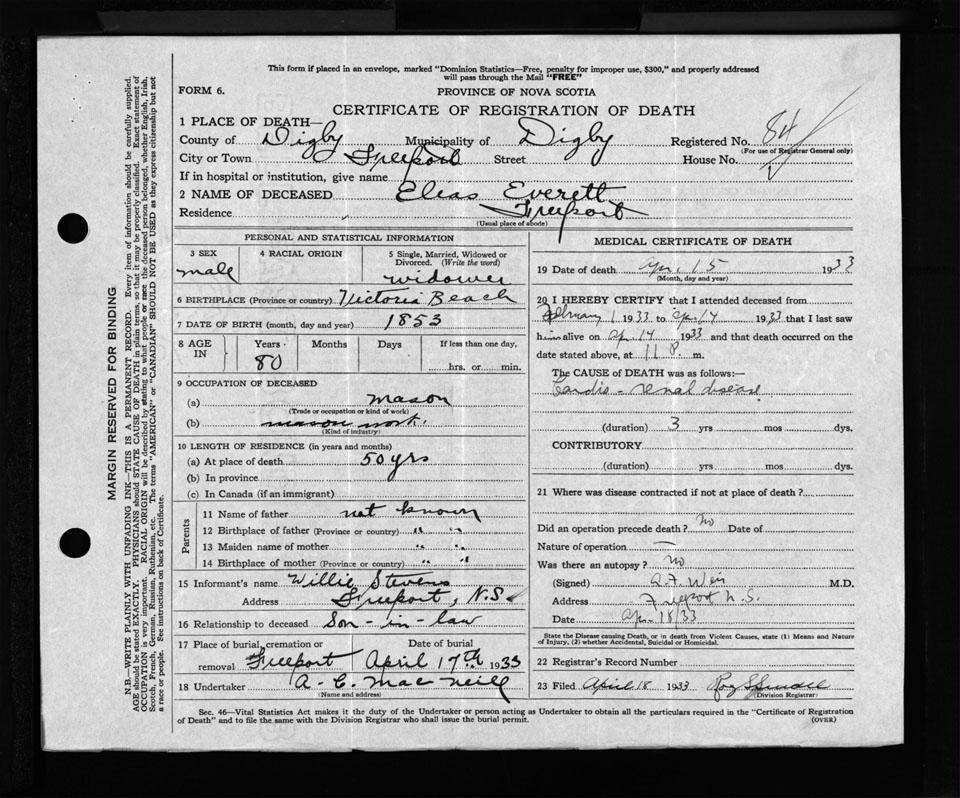 This form if placed in an envelope, marked "Dominion Statistics—Free, penalty for improper use, $300," and properly addressed
will pass through the Mail "FREE"
FORM 6. PROVINCE OF NOVA SCOTIA
CERTIFICATE OF REGISTRATION OF DEATH
1 PLACE OF DEATH—
County of Digby Municipality of Digby Registered No. 84
(For use of Registrar General only)
City or Town Freeport Street House No.
If in hospital or institution, give name
2 NAME OF DECEASED Elias Everett
Residence Freeport
(Usual place of abode)
PERSONAL AND STATISTICAL INFORMATION
3 SEX 4 RACIAL ORIGIN 5 Single, Married, Widowed or
Divorced. (Write the word)
male widower
6 BIRTHPLACE (Province or country) Victoria Beach
7 DATE OF BIRTH (month, day and year) 1853
8 AGE IN Years Months Days If less than one day,
80 hrs. or min.
9 OCCUPATION OF DECEASED
(a) mason
(Trade or occupation or kind of work)
(b) mason work.
(Kind of industry)
10 LENGTH OF RESIDENCE (in years and months)
(a) At place of death 50 yrs
(b) In province
(c) In Canada (if an immigrant)
Parents
11 Name of father not known
12 Birthplace of father (Province or country) " "
13 Maiden name of mother " "
14 Birthplace of mother (Province or country) " "
15 Informant's name Willie Stevens
Address Freeport, N.S.
16 Relationship to deceased Son-in-law
17 Place of burial, cremation or Date of burial
removal Freeport April 17th 1933
18 Undertaker A. C. MacNeill
(Name and address)
MEDICAL CERTIFICATE OF DEATH
19 Date of death Apr. 15 1933
(Month, day and year)
20 I HEREBY CERTIFY that I attended deceased from
February 1 1933 to Apr 14 1933 that I last saw
him alive on Apr 14 1933 and that death occurred on the
date stated above, at 11 P. m.
The CAUSE OF DEATH was as follows:—
Cardio-renal disease
(duration) 3 yrs mos dys.
CONTRIBUTORY
(duration) yrs mos dys.
21 Where was disease contracted if not at place of death?
Did an operation precede death? No Date of
Nature of operation —
Was there an autopsy? No
(Signed) A F Weir M.D.
Address Freeport N.S.
Date Apr 18/33
State the Disease causing Death, or in death from Violent Causes, state (1) Means and Nature
of Injury, (2) whether Accidental, Suicidal or Homicidal.
22 Registrar's Record Number
23 Filed April 18 1933 Roy
(Division Registrar)
Sec. 46—Vital Statistics Act makes it the duty of the Undertaker or person acting as Undertaker to obtain all the particulars required in the "Certificate of Registration
of Death" and to file the same with the Division Registrar who shall issue the burial permit.
(OVER)
MARGIN RESERVED FOR BINDING
N.B.—WRITE PLAINLY WITH UNFADING INK—THIS IS A PERMANENT RECORD. Every item of information should be carefully supplied.
AGE should be stated EXACTLY. PHYSICIANS should STATE CAUSE OF DEATH in plain terms, so that it may be properly classified. Exact statement of
OCCUPATION is very important. RACIAL ORIGIN will be described by stating to what people or race the deceased person belonged, whether English, Irish,
Scotch, French, German, Russian, Ruthenian, etc. The terms "AMERICAN" or "CANADIAN" SHOULD NOT BE USED as they express citizenship but not
a race or people. See instructions on back of Certificate.